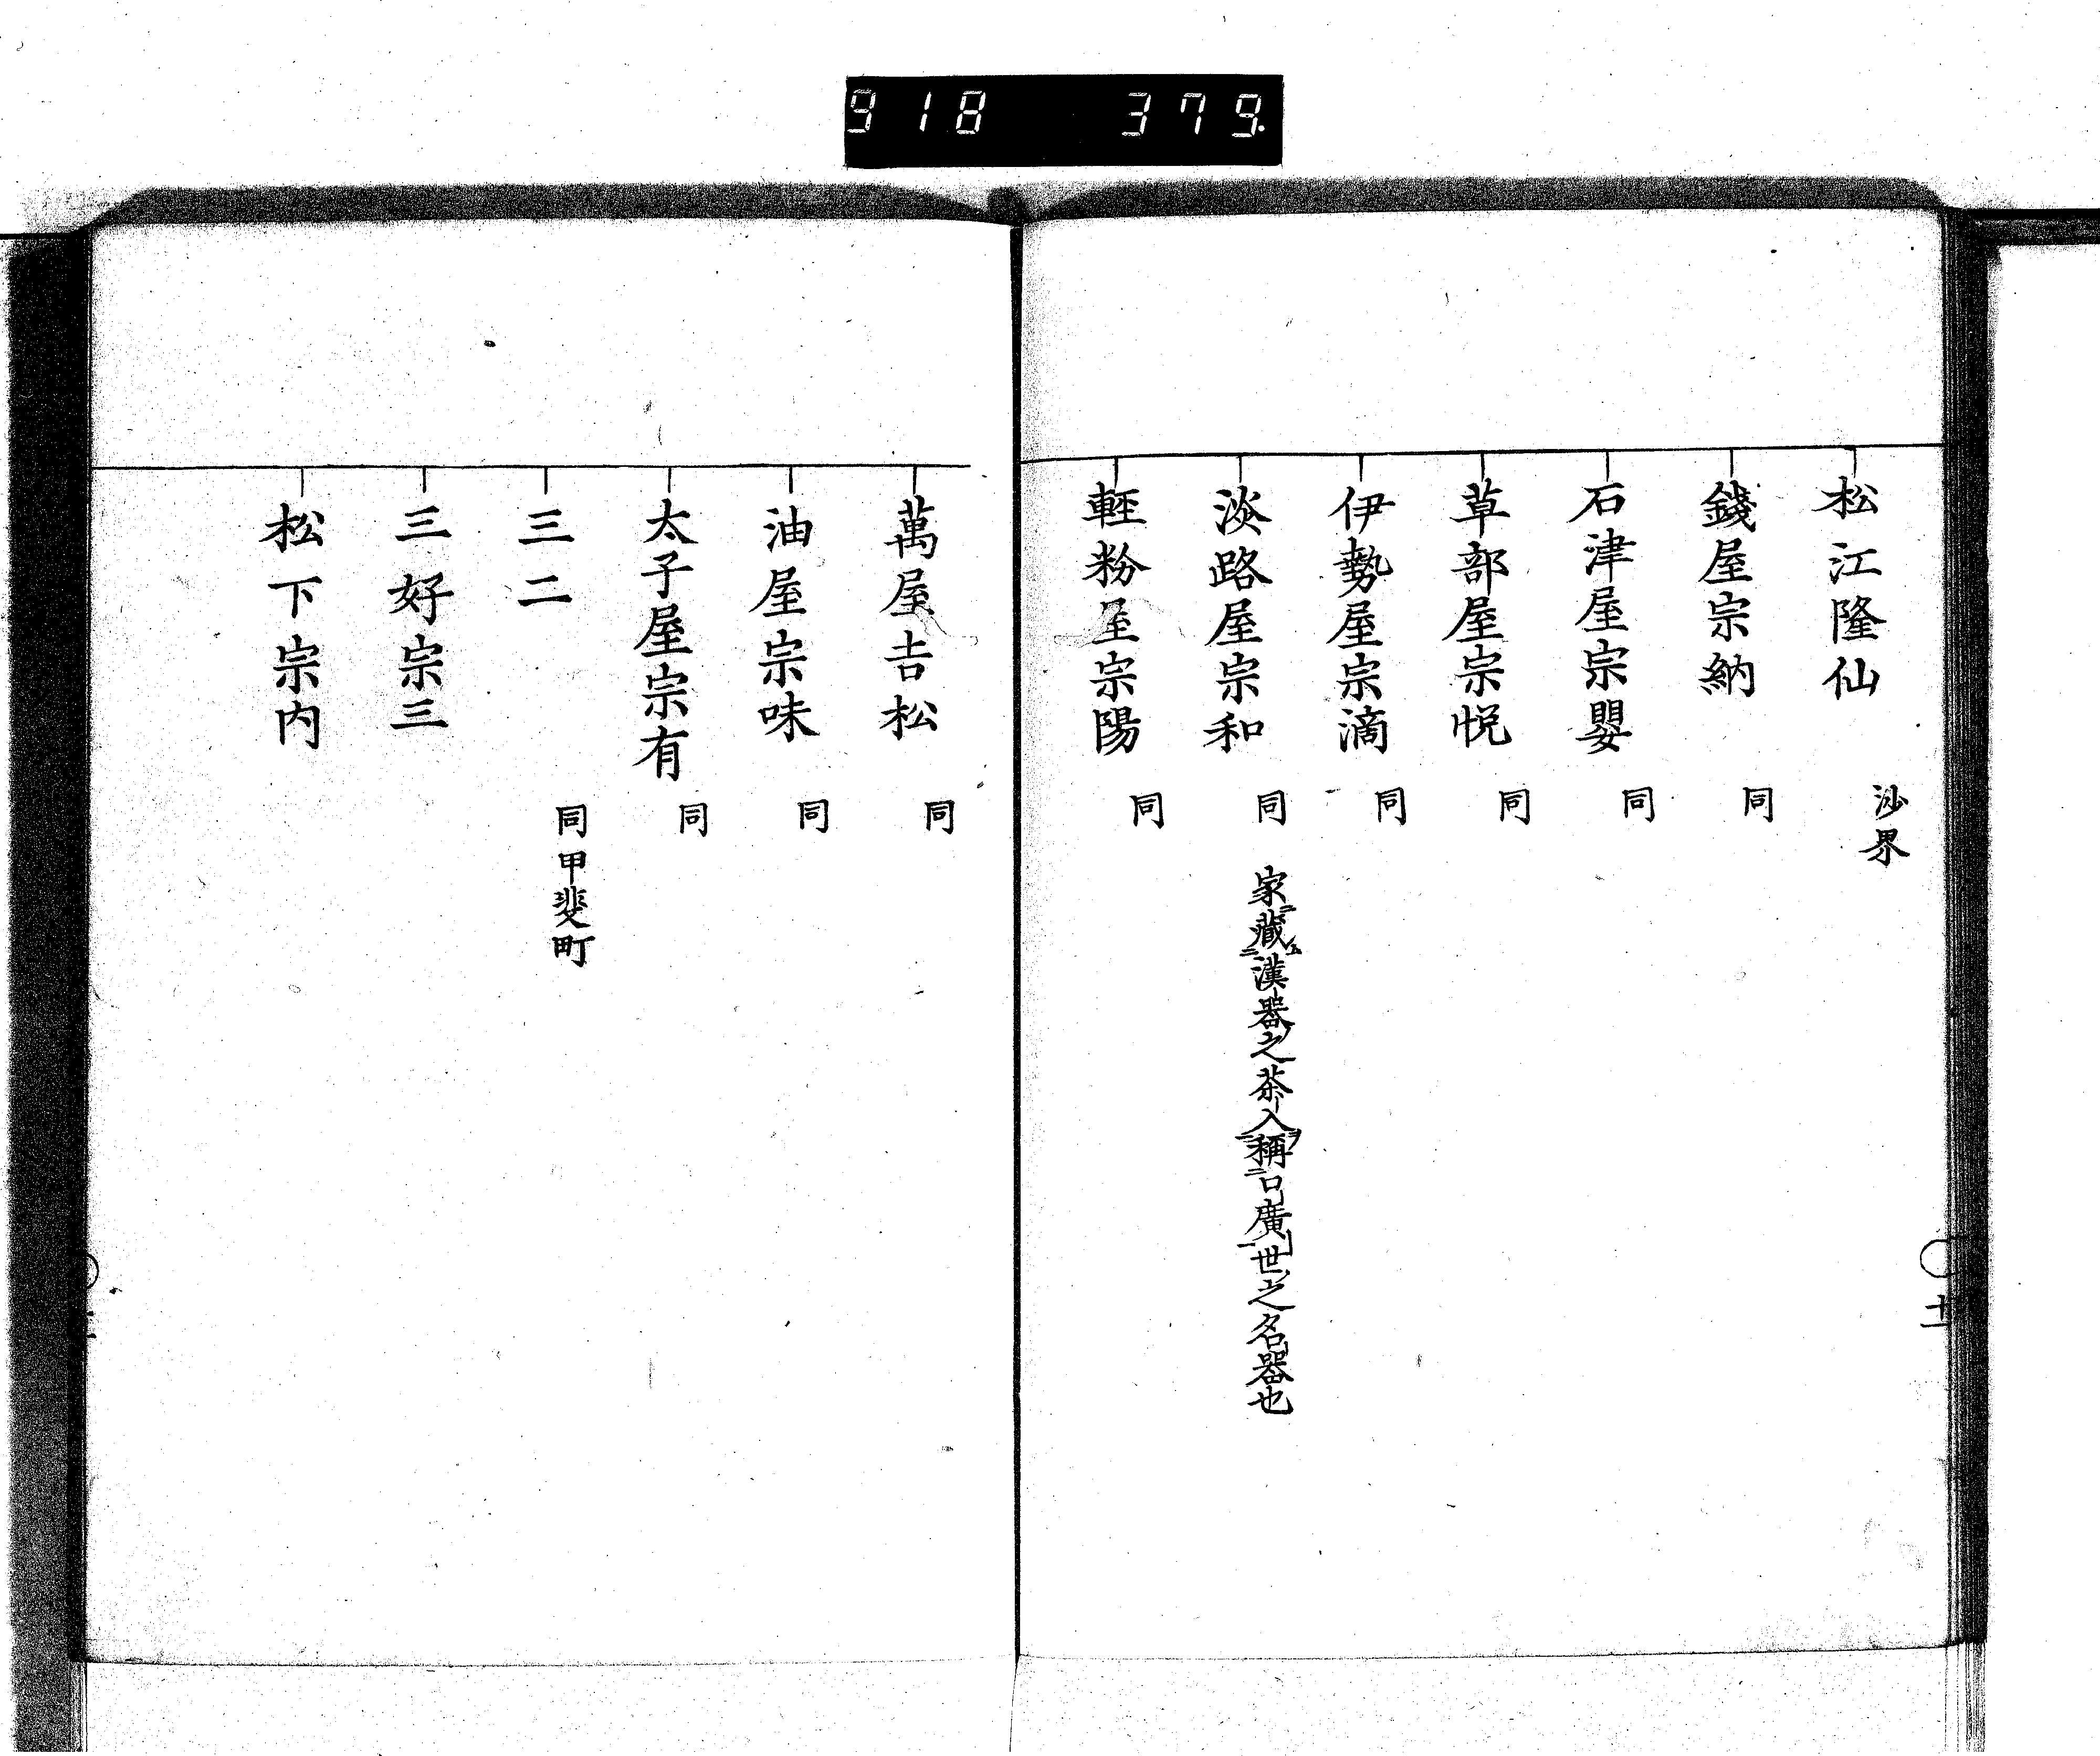 918 379.
松江隆仙 沙界
錢屋宗納 同
石津屋宗嬰 同
草部屋宗悦 同
伊勢屋宗滴 同
淡路屋宗和 同 家藏漢器之茶入稱口廣世之名器也
輕粉屋宗陽 同
萬屋吉松 同
油屋宗味 同
太子屋宗有 同
三二 同甲斐町
三好宗三
松下宗内